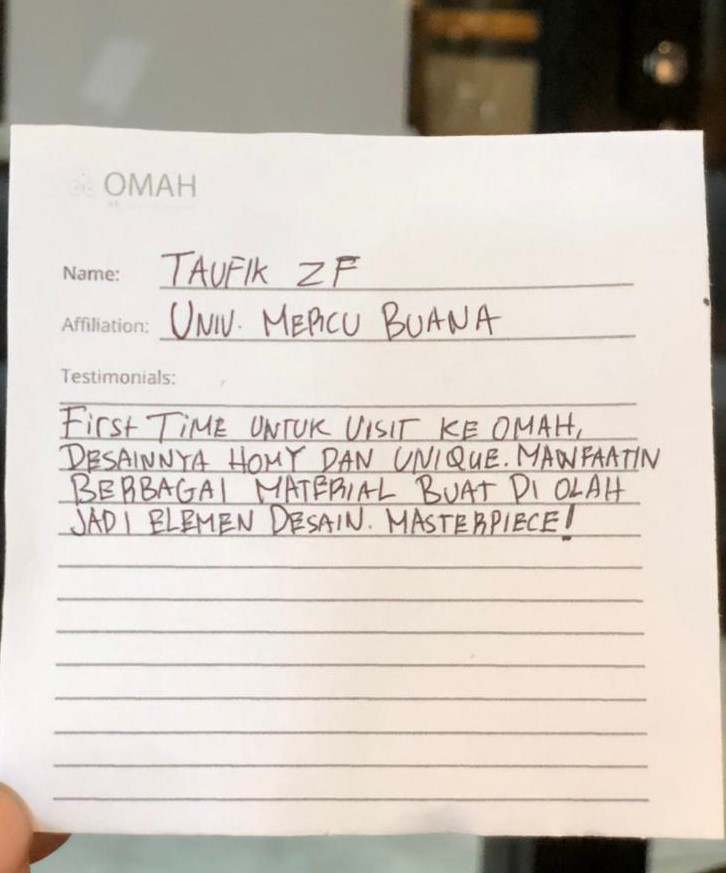 OMAH
Name: TAUFIK ZF
Affiliation: UNIV. MERCU BUANA
Testimonials:
FIRST TIME UNTUK VISIT KE OMAH,
DESAINNYA HOMY DAN UNIQUE. MANFAATIN
BERBAGAI MATERIAL BUAT DI OLAH
JADI ELEMEN DESAIN. MASTERPIECE!